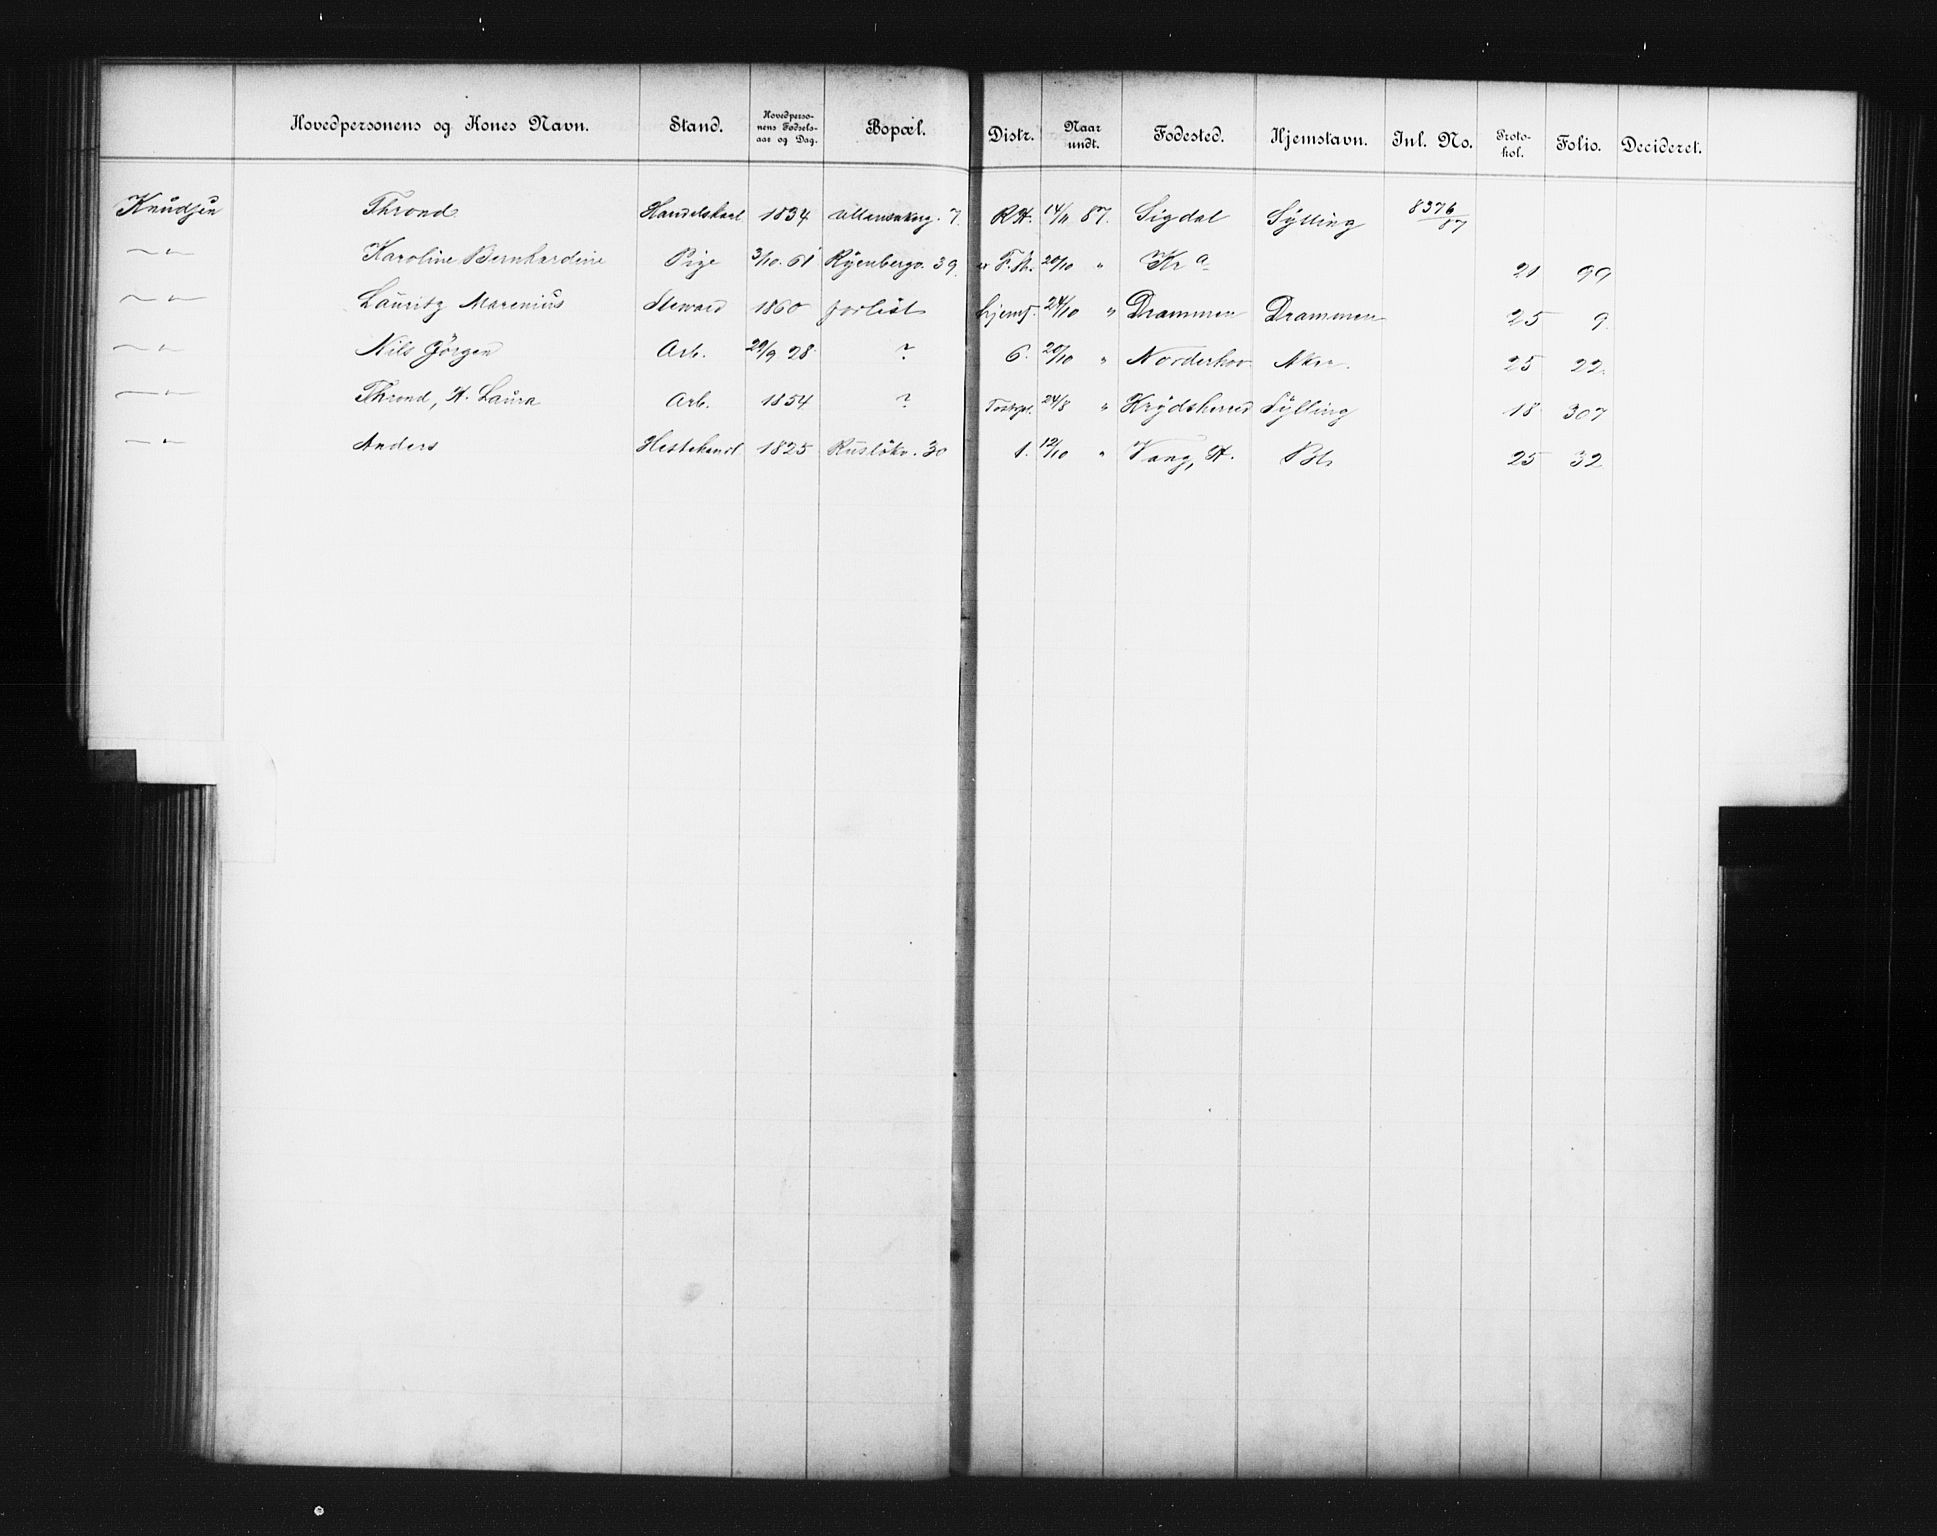 Hovedpersonens og Kones Navn. Stand. Hovedpersonens Fødselsaar og Dag. Bopæl. Distr. Naar undt. Fødested. Hjemstavn. Inl. No. Protokol. Folio. Decideret.
Knudsen Thrond Handelskarl 1834 7. R.H. 14/11 87. Sigdal Sylling 8376/87
—"— Karoline Bernhardine Pige 3/10. 61 Ryenbergv. 39. F.h. 20/10 " Kr a 21 99
—"— Lauritz Marenius Steward 1860 forlist hjemf. 24/10 " Drammen Drammen 25 9.
—"— Nils Jørgen Arb. 29/9 28. ? 6. 20/10 " Norderhov Aker. 25 22.
—"— Thrond, H. Laura Arb. 1854 ? 24/8 " Krydsherred Sylling 18 307
—"— Anders Hestehandl 1825 Rusløkv. 30 1. 12/10 " Vang, H. 25 32